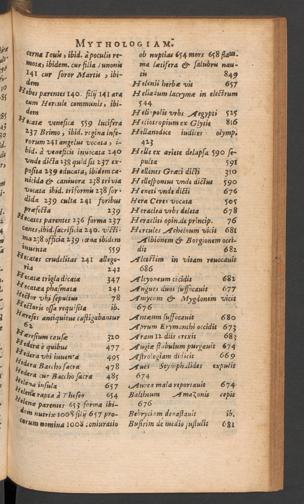 MYTHOLOGIAM.
cerna Iouis, ibid. à poculis re-
mota, ibidem. cur filia Iunonis
241 cur soror Martis, ibi-
dem
Hebes parentes 140. filij 141 ara
cum Hercule communis, ibi-
dem
Hecate venefica 559 lucifera
237 Brimo, ibid. regina infe-
rorum 241 angelus vocata, i-
bid. à veneficis inuocata 240
vnde dicta 238 quid sit 237 ex-
posita 239 educata, ibidem ca-
nicida & caniuora 238 triuia
vocata ibid. triformis 238 sor-
dida 239 culta 241 foribus
præfecta 239
Hecates parentes 236 forma 237
canes, ibid. sacrificia 240. victi-
ma 238 officia 239 cæna ibidem
inuenta 559
Hecates crudelitas 241 allego-
ria 242
Hecatæ trigla dicata 347
Hecatæa phasmata 241
Hector vbi sepultus 78
Hectoris ossa requisita ib.
Hæreses antiquitus castigabantur
62
Harpsisum caule 320
Hedera è quibus 477
Hedera vbi inuenta 495
Hedera Baccho sacra 478
Hedera cur Baccho sacra 485
Helena insula 657
Helena rapta à Theseo 654
Helenæ parentes 653 forma ibi-
dem nutrix 1008 filij 657 pro-
carum nomina 1008. coniuratio
ob nuptias 654 mors 658 flam-
ma læsifera & salubru nau-
tis 849
Helenij herba vis 657
Heliadum lacrymæ in electrum
544
Heliopolis vrbs Aegypti 525
Heliotropium ex Glytia 816
Hellanodicæ iudices olymp.
423
Helle ex ariete delapsa 590 se-
pulta 591
Hellenes Græci dicti 310
Hellespontus vnde dictus 590
Heneti vnde dicti 676
Hera Ceres vocata 525
Heraclea vrbs deleta 678
Heracliti opin. de princip. 76
Hercules Achelaum vicit 681
Albionem & Borgionem occi-
dit 682
Alcestim in vitam reuocauit
686
Alcyoneum occidit 682
Angues duos suffocauit 677
Amycum & Mygdonem vicit
676
Antæum suffocauit 680
Aprum Erymanthi occidit 673
Aram 12 diis erexit 683
Augiæ stabulum purgauit 674
Astrologiam didicit 669
Aues Stymphalides expulit
674
Aurea mala reportauit 674
Baltheum Amazonis cepit
676
Bebryciam deuastauit ib.
Busirim de medio sustulit 681